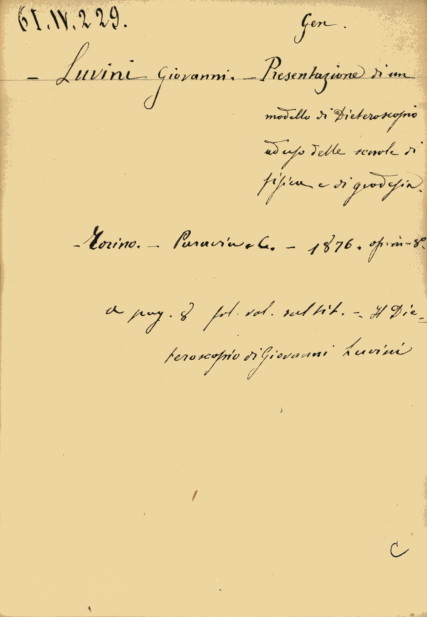 61.IV.229.
Gen.
- Luvini Giovanni. - Presentazione di un
modello di Dieteroscopio
ad uso delle scuole di
fisica e di geodesia.
- Torino. - Paravia e C. - 1876. op. in-8°.
a pag. 8 fol. vol. sul tit. - Il Die-
teroscopio di Giovanni Luvini
C